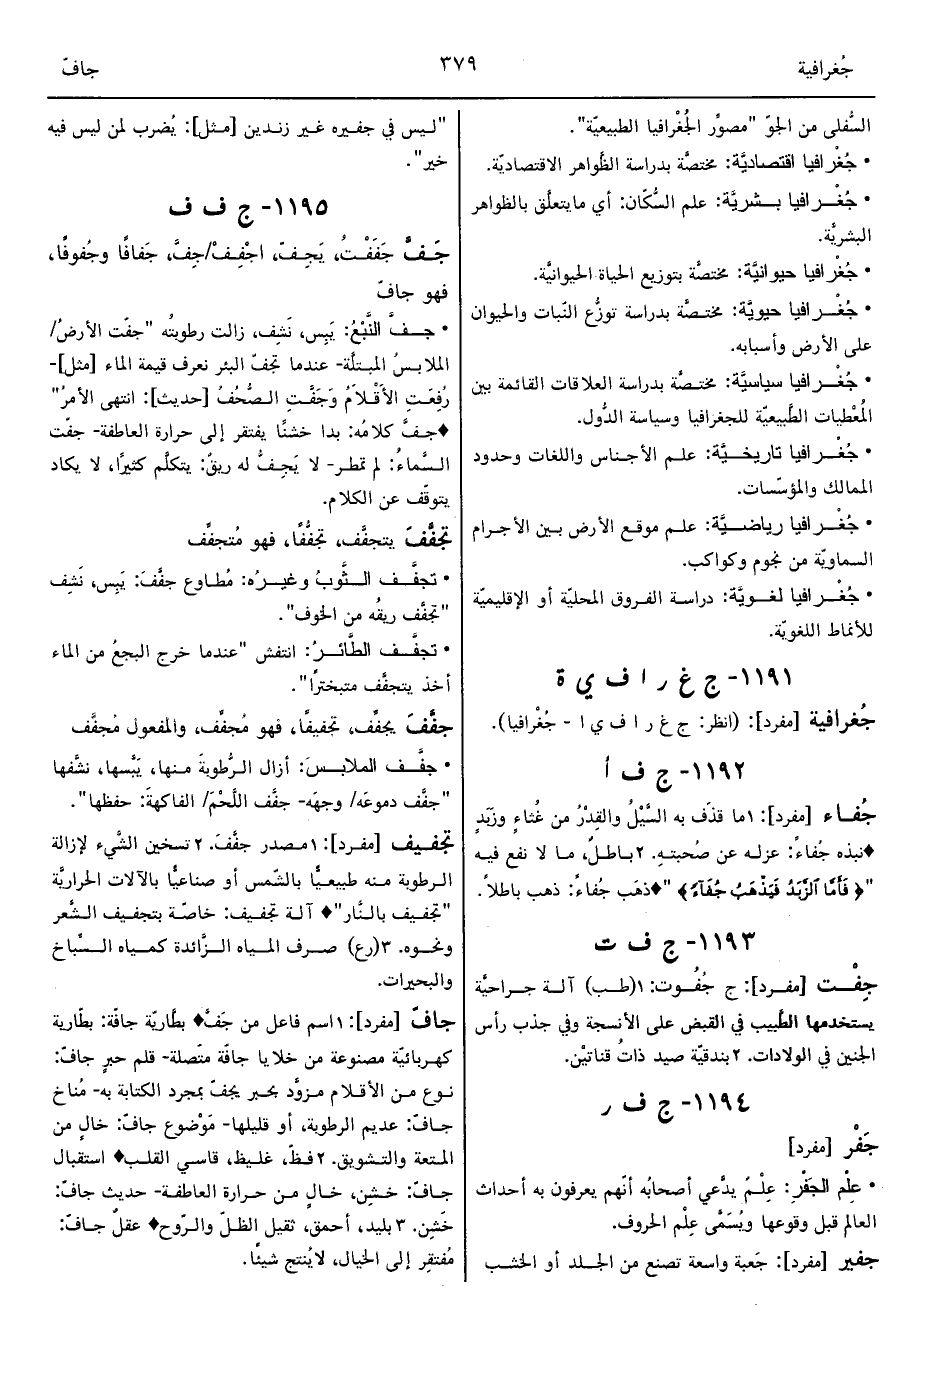 جُغرافية
٣٧٩
جافّ
السُّفلى من الجوّ "مصوِّر الجُغْرافيا الطبيعيّة".
• جُغْرافيا اقتصاديَّة: مختصَّة بدراسة الظَّواهر الاقتصاديّة.
• جُغْرافيا بشريَّة: علم السُّكّان: أي مايتعلَّق بالظواهر
البشريَّة.
• جُغْرافيا حيوانيَّة: مختصَّة بتوزيع الحياة الحيوانيَّة.
• جُغْرافيا حيويَّة: مختصَّة بدراسة توزُّع النّبات والحيوان
على الأرض وأسبابه.
• جُغْرافيا سياسيَّة: مختصَّة بدراسة العلاقات القائمة بين
المُعْطيات الطَّبيعيّة للجغرافيا وسياسة الدُّول.
• جُغْرافيا تاريخيَّة: علم الأجناس واللغات وحدود
الممالك والمؤسّسات.
• جُغْرافيا رياضيَّة: علم موقع الأرض بين الأجرام
السماويّة من نجوم وكواكب.
• جُغْرافيا لغويَّة: دراسة الفروق المحليّة أو الإقليميّة
للأنماط اللغويّة.
١١٩١- ج غ ر ا ف ي ة
جُغرافية [مفرد]: (انظر: ج غ ر ا ف ي ا - جُغْرافيا).
١١٩٢- ج ف أ
جُفاء [مفرد]: ١ما قذَف به السَّيْلُ والقِدْرُ من غُثاءٍ وزَبَدٍ
♦نبذه جُفاءً: عزله عن صُحبتِه. ٢باطلٌ، ما لا نفع فيه
"﴿ فَأَمَّا ٱلزَّبَدُ فَيَذْهَبُ جُفَآءً﴾ "♦ذهَب جُفاءً: ذهب باطلاً.
١١٩٣- ج ف ت
جِفْت [مفرد]: ج جُفُوت: ١(طب) آلة جراحيَّة
يستخدمها الطَّبيب في القبض على الأنسجة وفي جذب رأس
الجنين في الولادات. ٢بندقيّة صيد ذاتُ قناتيْن.
١١٩٤- ج ف ر
جَفْر [مفرد]
• عِلْم الجَفْرِ: عِلْمٌ يدَّعي أصحابُه أنّهم يعرفون به أحداث
العالم قبل وقوعها ويُسَمَّى عِلْم الحروف.
جفير [مفرد]: جَعبة واسعة تصنع من الجلد أو الخشب
"ليس في جفيره غير زندين [مثل]: يُضرب لمن ليس فيه
خير".
١١٩٥- ج ف ف
جَفَّ جَفَفْتُ، يَجِفّ، اجْفِفْ/جِفَّ، جَفافًا وجُفوفًا،
فهو جافّ
• جفَّ النَّبْعُ: يَبِس، نَشِف، زالت رطوبتُه "جفّت الأرضُ/
الملابسُ المبتلّة- عندما تجفّ البئر نعرف قيمة الماء [مثل]-
رُفِعَتِ الأَقْلاَمُ وَجَفَّتِ الصُّحُفُ [حديث]: انتهى الأمرُ"
♦جفَّ كلامُه: بدا خشنًا يفتقر إلى حرارة العاطفة- جفّت
السَّماءُ: لم تمطر- لا يَجِفُّ له ريقٌ: يتكلَّم كثيرًا، لا يكاد
يتوقّف عن الكلام.
تجفَّفَ يتجفَّف، تجفُّفًا، فهو مُتجفِّف
• تجفَّف الثَّوبُ وغيرُه: مُطاوع جفَّفَ: يَبِس، نَشِف
"تجفَّف ريقُه من الخوف".
• تجفَّف الطَّائرُ: انتفش "عندما خرج البجعُ من الماء
أخذ يتجفَّف متبخترًا".
جفَّفَ يجفِّف، تجفيفًا، فهو مُجفِّف، والمفعول مُجفَّف
• جفَّف الملابسَ: أزال الرُّطوبةَ منها، يَبَّسها، نشَّفها
"جفَّف دموعَه/ وجهَه- جفَّف اللَّحْمَ/ الفاكهةَ: حفظها".
تجفيف [مفرد]: ١مصدر جفَّفَ. ٢تسخين الشَّيء لإزالة
الرطوبة منه طبيعيًّا بالشّمس أو صناعيًّا بالآلات الحراريَّة
"تجفيف بالنَّار"♦ آلة تجفيف: خاصّة بتجفيف الشَّعر
ونحوه. ٣(رع) صرف المياه الزَّائدة كمياه السِّباخ
والبحيرات.
جافّ [مفرد]: ١اسم فاعل من جَفَّ♦ بطّاريّة جافّة: بطّارية
كهربائيّة مصنوعة من خلايا جافّة متّصلة- قلم حبرٍ جافّ:
نوع من الأقلام مزوَّد بحبر يجفّ بمجرد الكتابة به- مُناخ
جافّ: عديم الرطوبة، أو قليلها- مَوْضوع جافّ: خالٍ من
المتعة والتشويق. ٢فظّ، غليظ، قاسي القلب♦ استقبال
جافّ: خشِن، خالٍ من حرارة العاطفة- حديث جافّ:
خَشِن. ٣بليد، أحمق، ثقيل الظلّ والرّوح♦ عقلٌ جافّ:
مُفتقِر إلى الخيال، لايُنتج شيئًا.